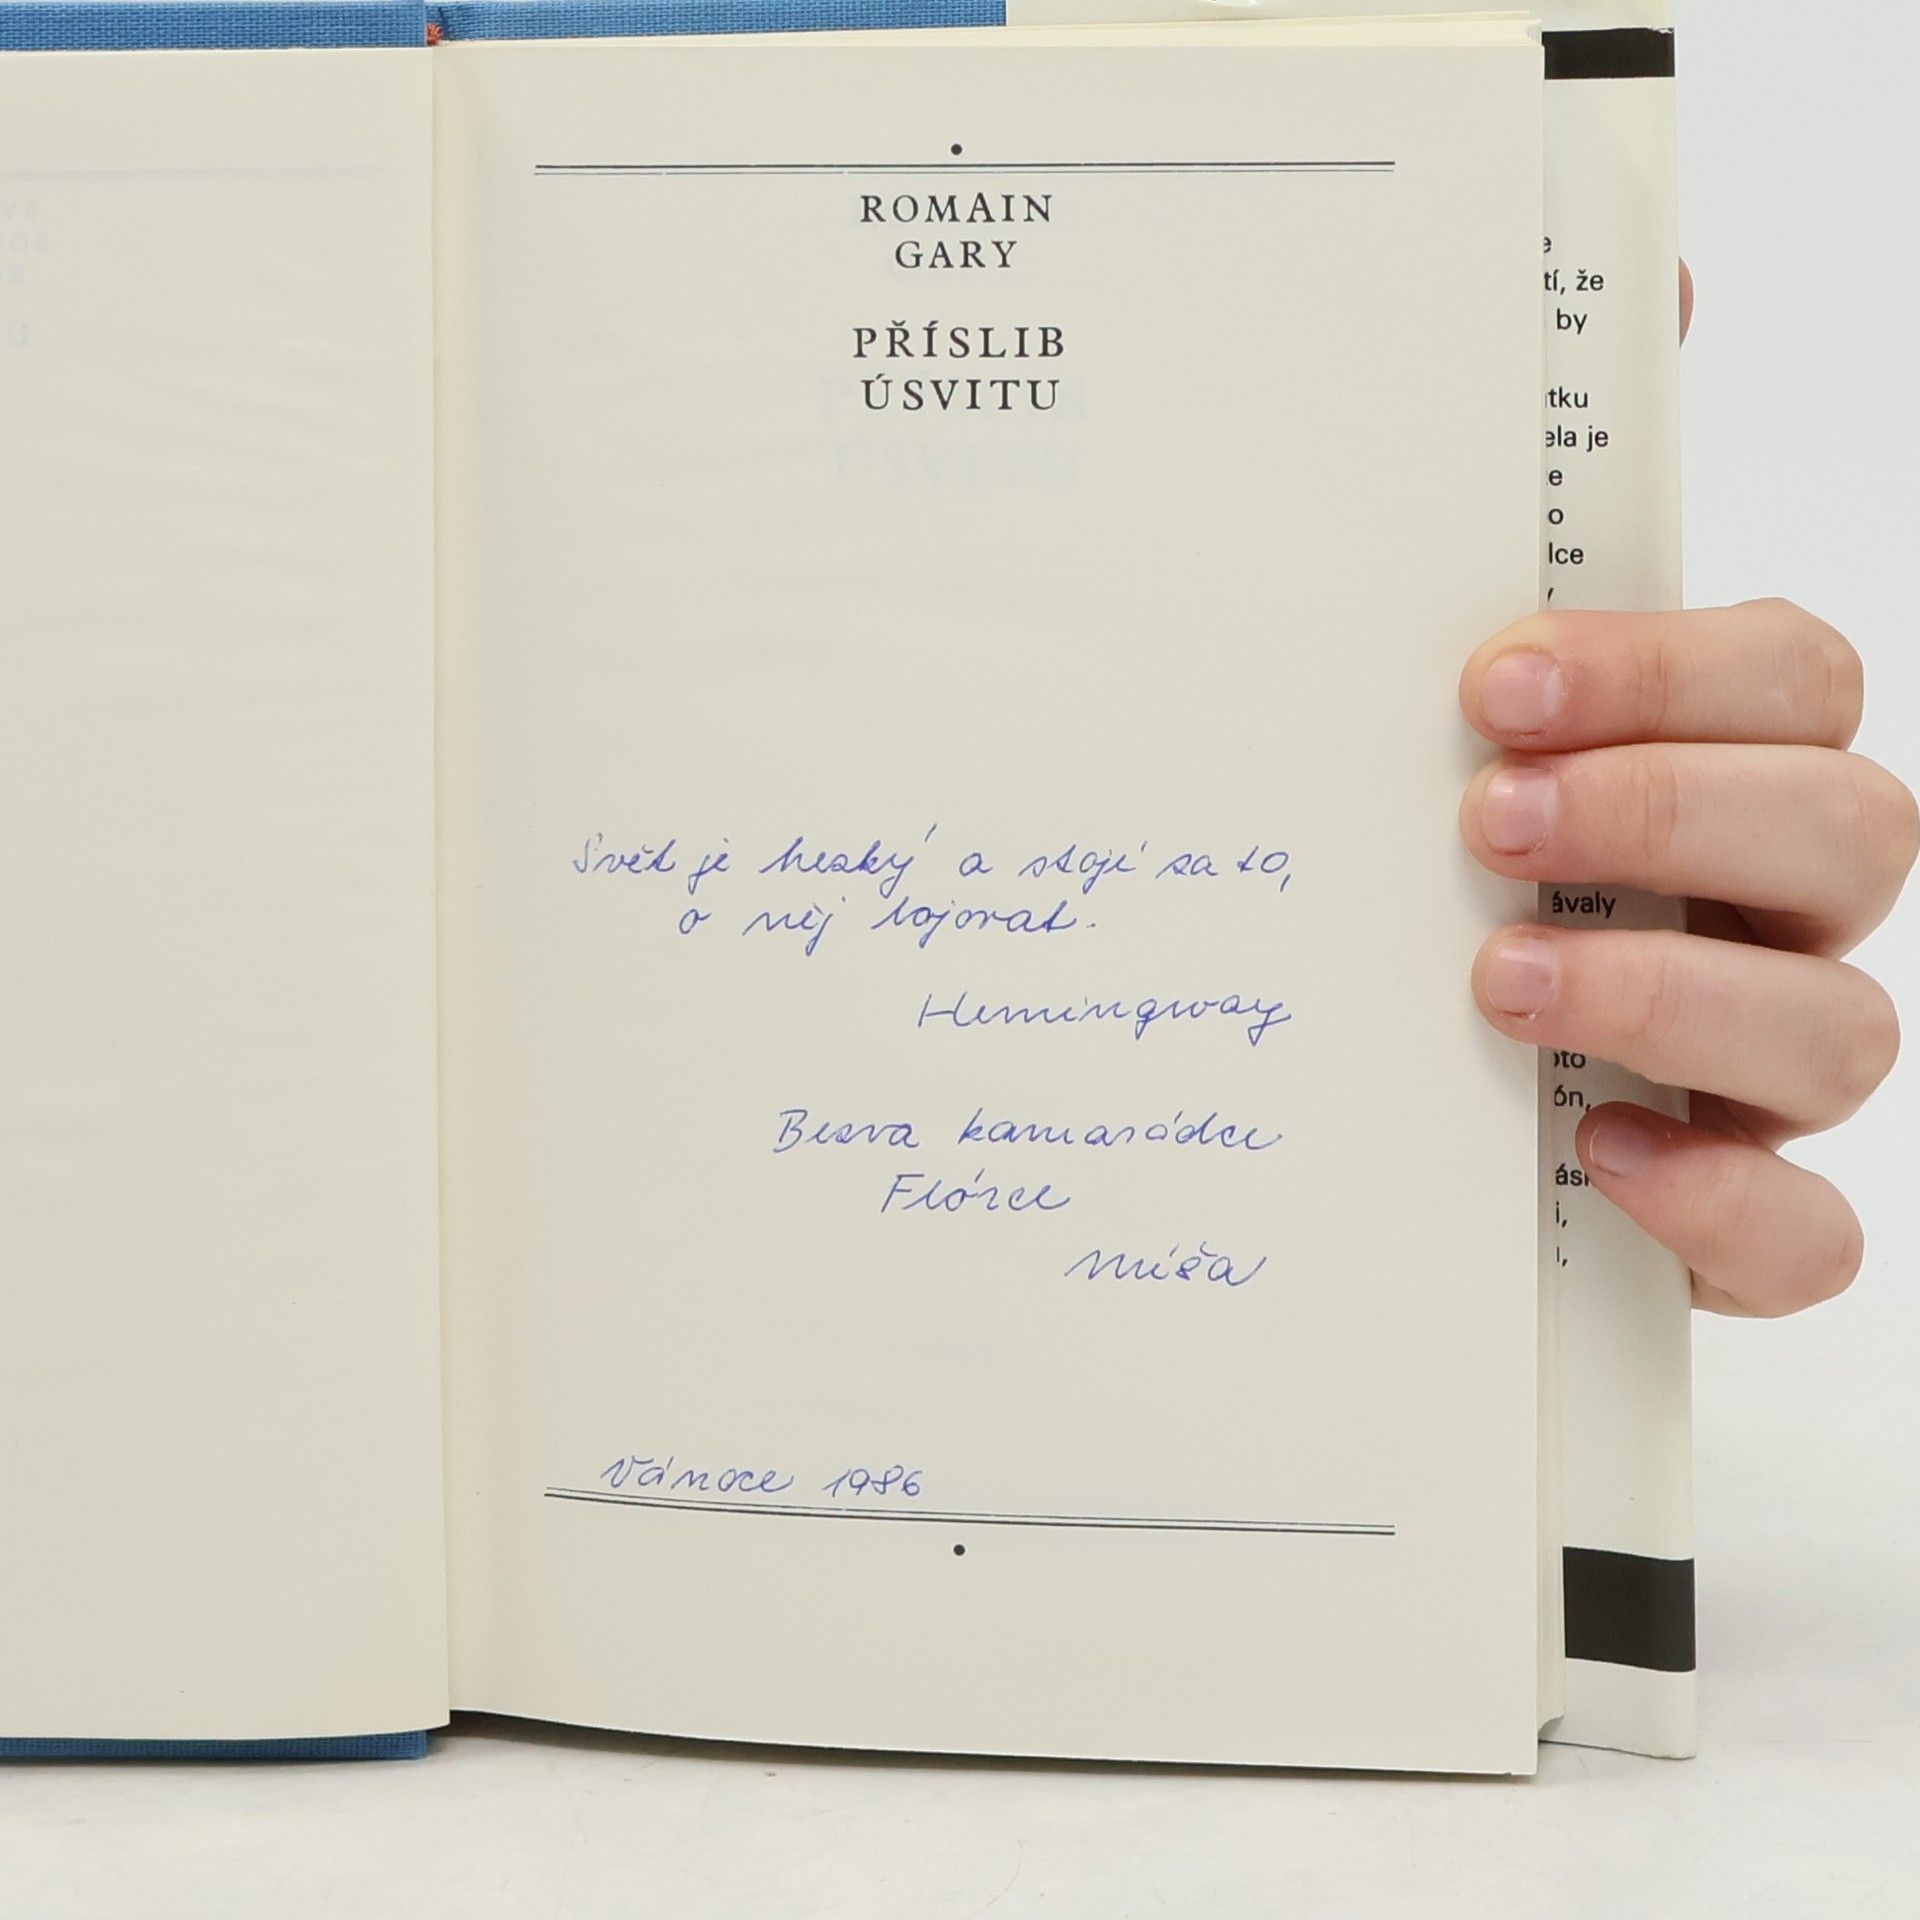 ROMAIN
GARY
PŘÍSLIB
ÚSVITU
Svět je hezký a stojí za to,
o něj bojovat.
Hemingway
Bezva kamarádce
Flórce
Míša
Vánoce 1986
tí, že
by
je
ávaly